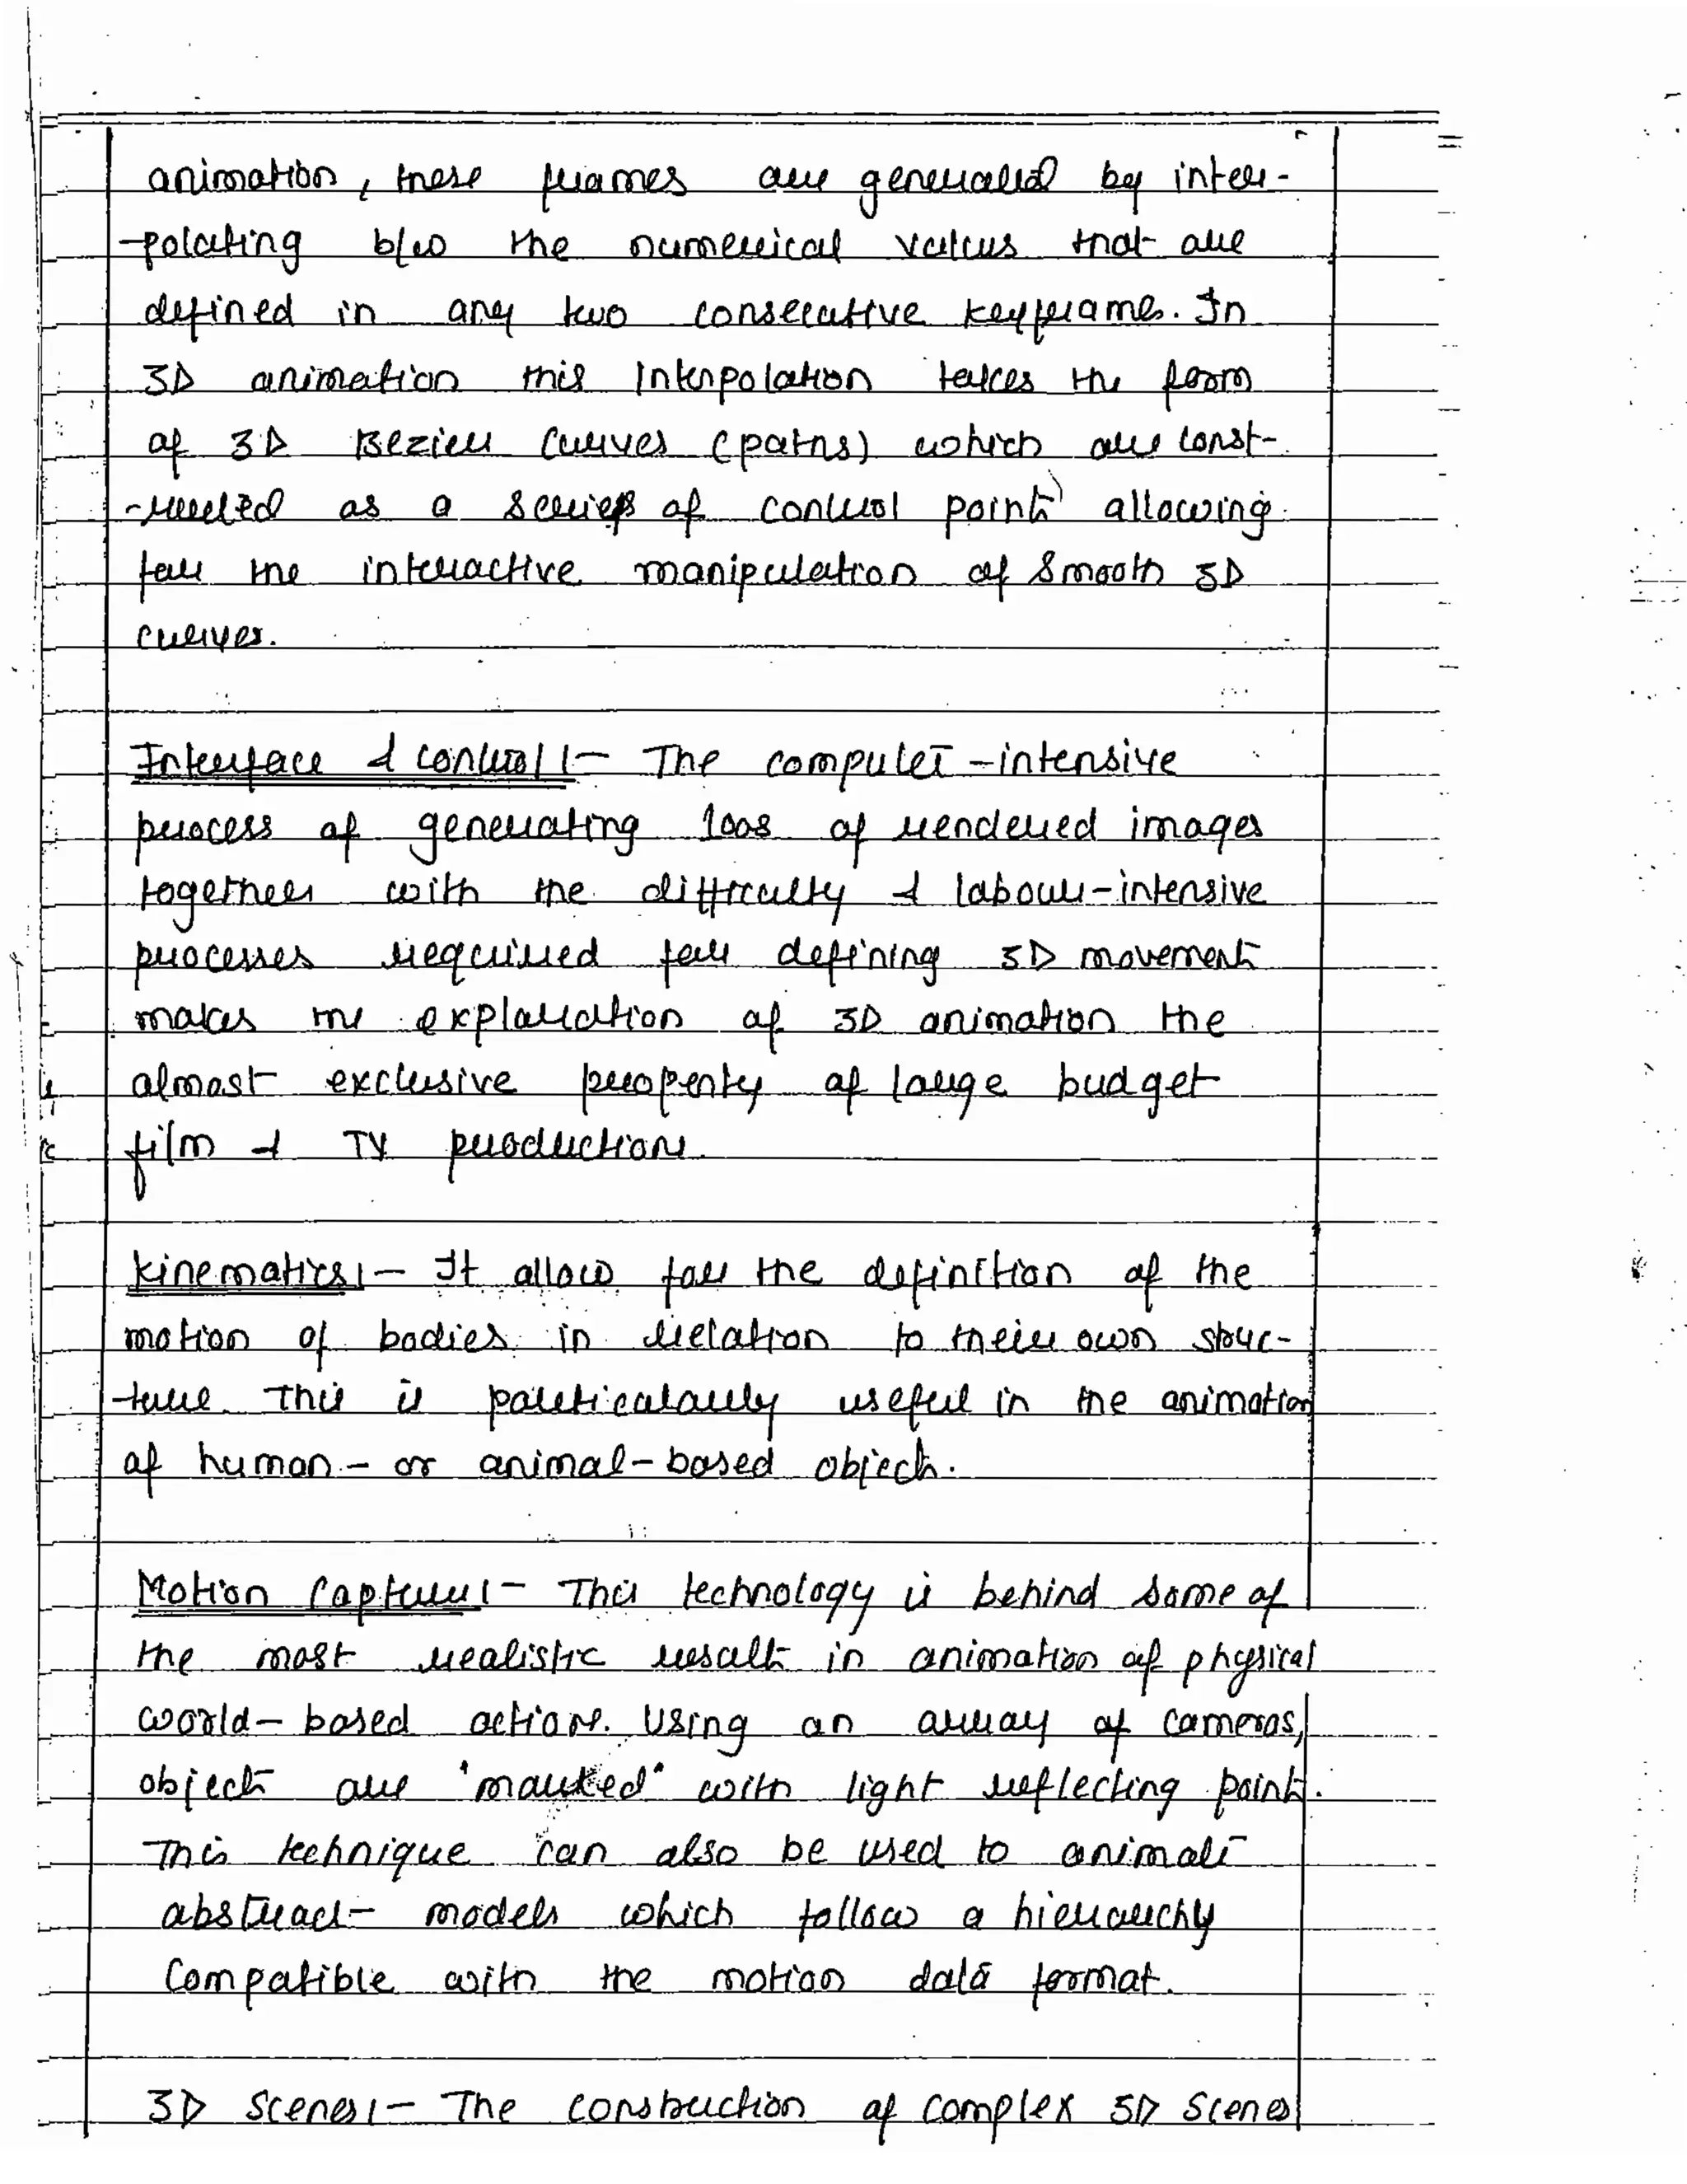 animation, these frames are generated by inter-
-polating b/w the numerical values that are
defined in any two consecutive keyframes. In
3D animation this Interpolation takes the form
of 3D Bezier Curves (paths) which are const-
-ructed as a series of control points allowing
for the interactive manipulation of smooth 3D
curves.
Interface & control :- The computer-intensive
process of generating 100s of rendered images
together with the difficulty & labour-intensive
processes required for defining 3D movements
makes the exploration of 3D animation the
almost exclusive property of large budget
film & TV productions.
Kinematics :- It allow for the definition of the
motion of bodies in relation to their own struc-
-ture. This is particularly useful in the animation
of human- or animal-based objects.
Motion Capture :- This technology is behind some of
the most realistic results in animation of physical
world-based actions. Using an array of cameras,
objects are "marked" with light reflecting points.
This technique can also be used to animate
abstract models which follow a hierarchy
Compatible with the motion data format.
3D Scenes :- The construction of complex 3D Scenes